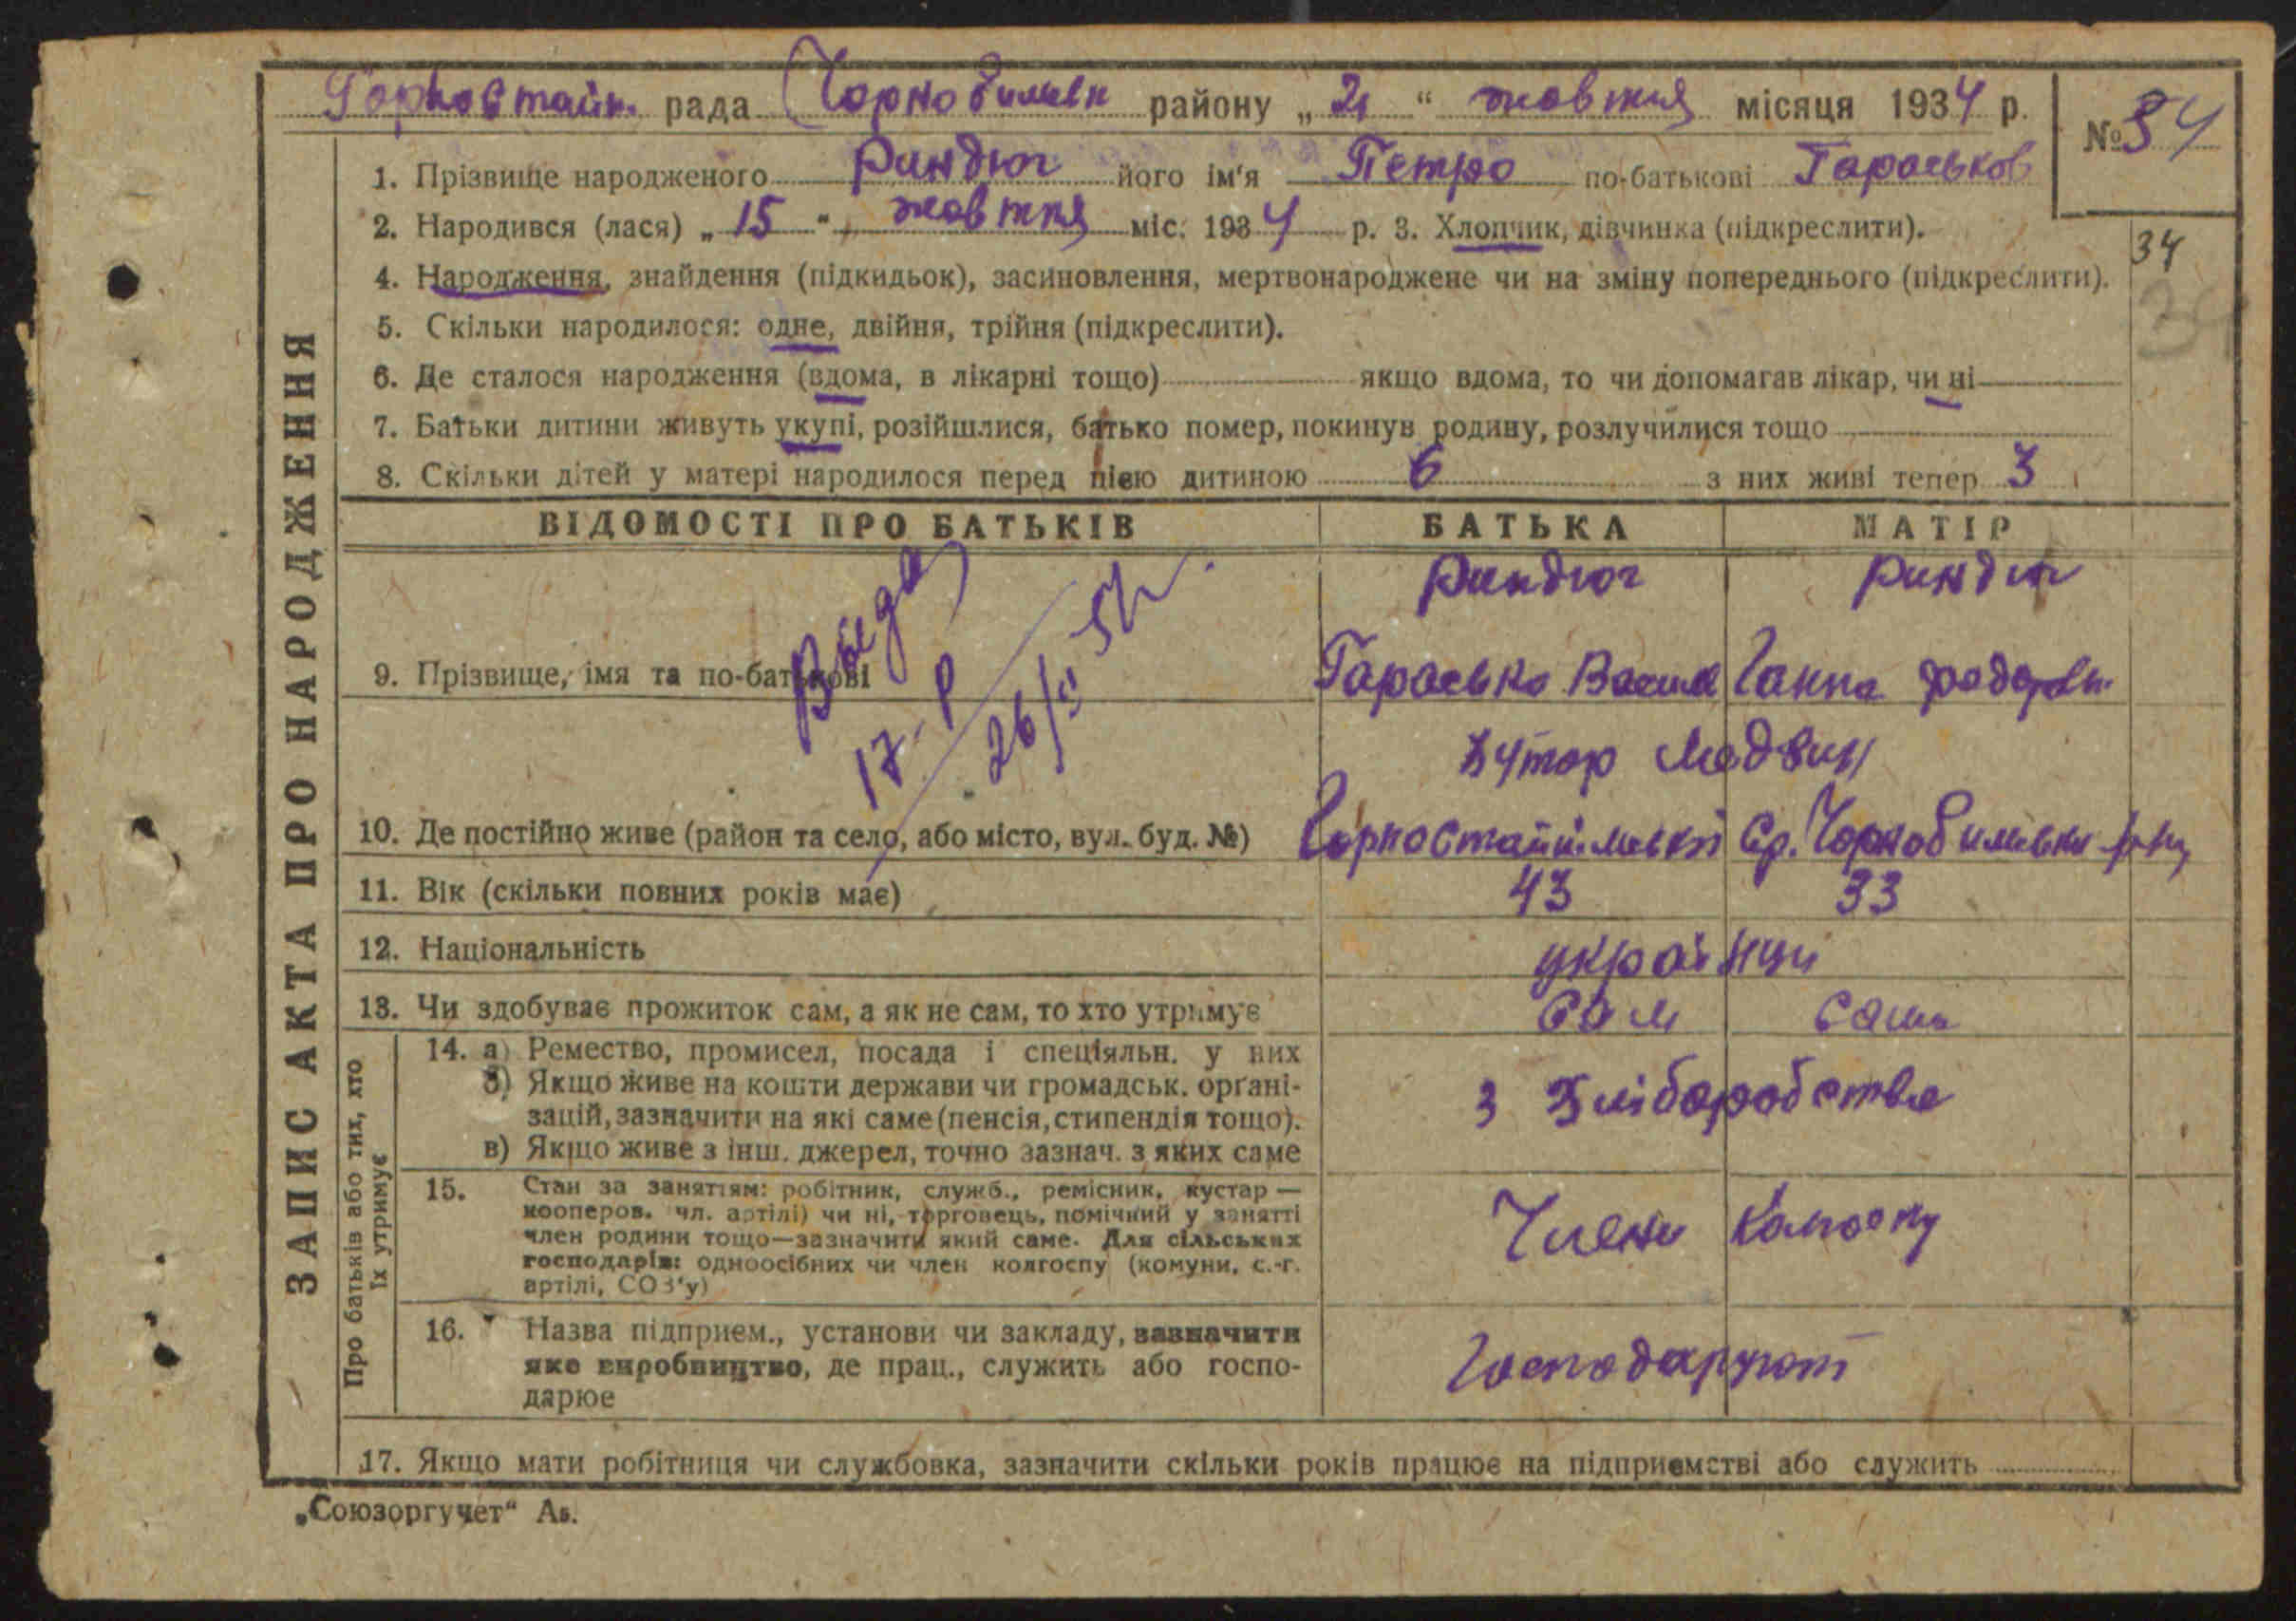 Горностайп. рада Чорнобильськ району „ 21 “ жовтня місяця 1934 р.
№ 34
1. Прізвище народженого Риндюг його ім'я Петро по-батькові Гараськов
2. Народився (лася) „ 15 “ жовтня міс. 1934 р. 3. Хлопчик, дівчинка (підкреслити).
34
34
4. Народження, знайдення (підкидьок), засиновлення, мертвонароджене чи на зміну попереднього (підкреслити).
5. Скільки народилося: одне, двійня, трійня (підкреслити).
6. Де сталося народження (вдома, в лікарні тощо) якщо вдома, то чи допомагав лікар, чи ні
7. Батьки дитини живуть укупі, розійшлися, батько помер, покинув родину, розлучилися тощо
8. Скільки дітей у матері народилося перед цією дитиною 6 з них живі тепер 3
ЗАПИС АКТА ПРО НАРОДЖЕННЯ
ВІДОМОСТІ ПРО БАТЬКІВ БАТЬКА МАТІР
Риндюг Риндюг
9. Прізвище, імя та по-батькові Гарасько Васил Ганна Федоровн.
17-Р
26/
хутор Медвин
10. Де постійно живе (район та село, або місто, вул. буд. №) Горностайпільської Ср. Чорнобильськ
11. Вік (скільки повних років має) 43 33
12. Національність українци
13. Чи здобуває прожиток сам, а як не сам, то хто утримує сам сама
Про батьків або тих, хто їх утримує
14. а) Ремество, промисел, посада і спеціяльн. у них
б) Якщо живе на кошти держави чи громадськ. орґані-
зацій, зазначити на які саме (пенсія, стипендія тощо).
в) Якщо живе з інш. джерел, точно зазнач. з яких саме
з Хліборобства
15. Стан за заняттям: робітник, служб., ремісник, кустар —
кооперов. чл. артілі) чи ні, торговець, помічний у занятті
член родини тощо—зазначити який саме. Для сільських
господарів: одноосібних чи член колгоспу (комуни, с.-г.
артілі, СОЗ'у)
Члени Колгоспу
16. Назва підприєм., установи чи закладу, зазначити
яке виробництво, де прац., служить або госпо-
дарює
Господарують
17. Якщо мати робітниця чи службовка, зазначити скільки років працює на підприємстві або служить
„Союзоргучет“